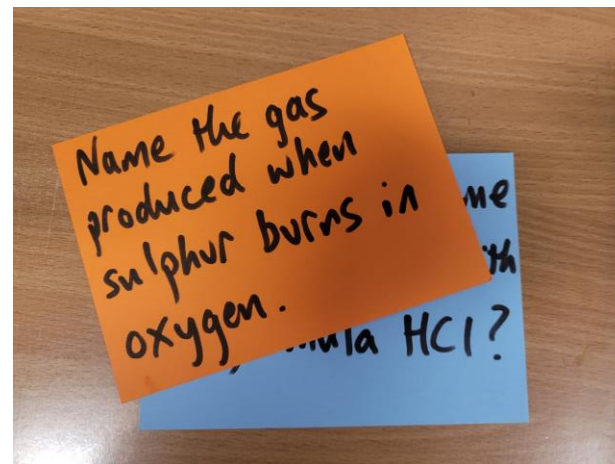 Name the gas
produced when
sulphur burns in
oxygen.
HCl?